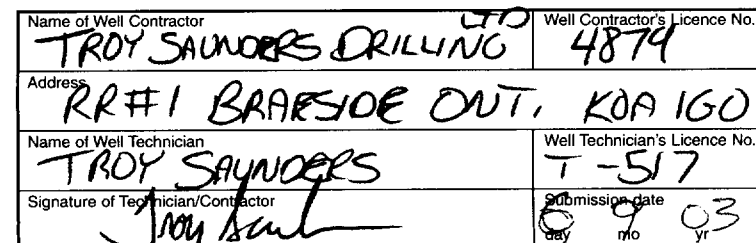 Name of Well Contractor
LTD
TROY SAUNDERS DRILLING
Well Contractor's Licence No.
4879
Address
RR#1 BRAESIDE ONT. K0A 1G0
Name of Well Technician
TROY SAUNDERS
Well Technician's Licence No.
T-517
Signature of Technician/Contractor
Troy
Submission date
6 9 03
day mo yr